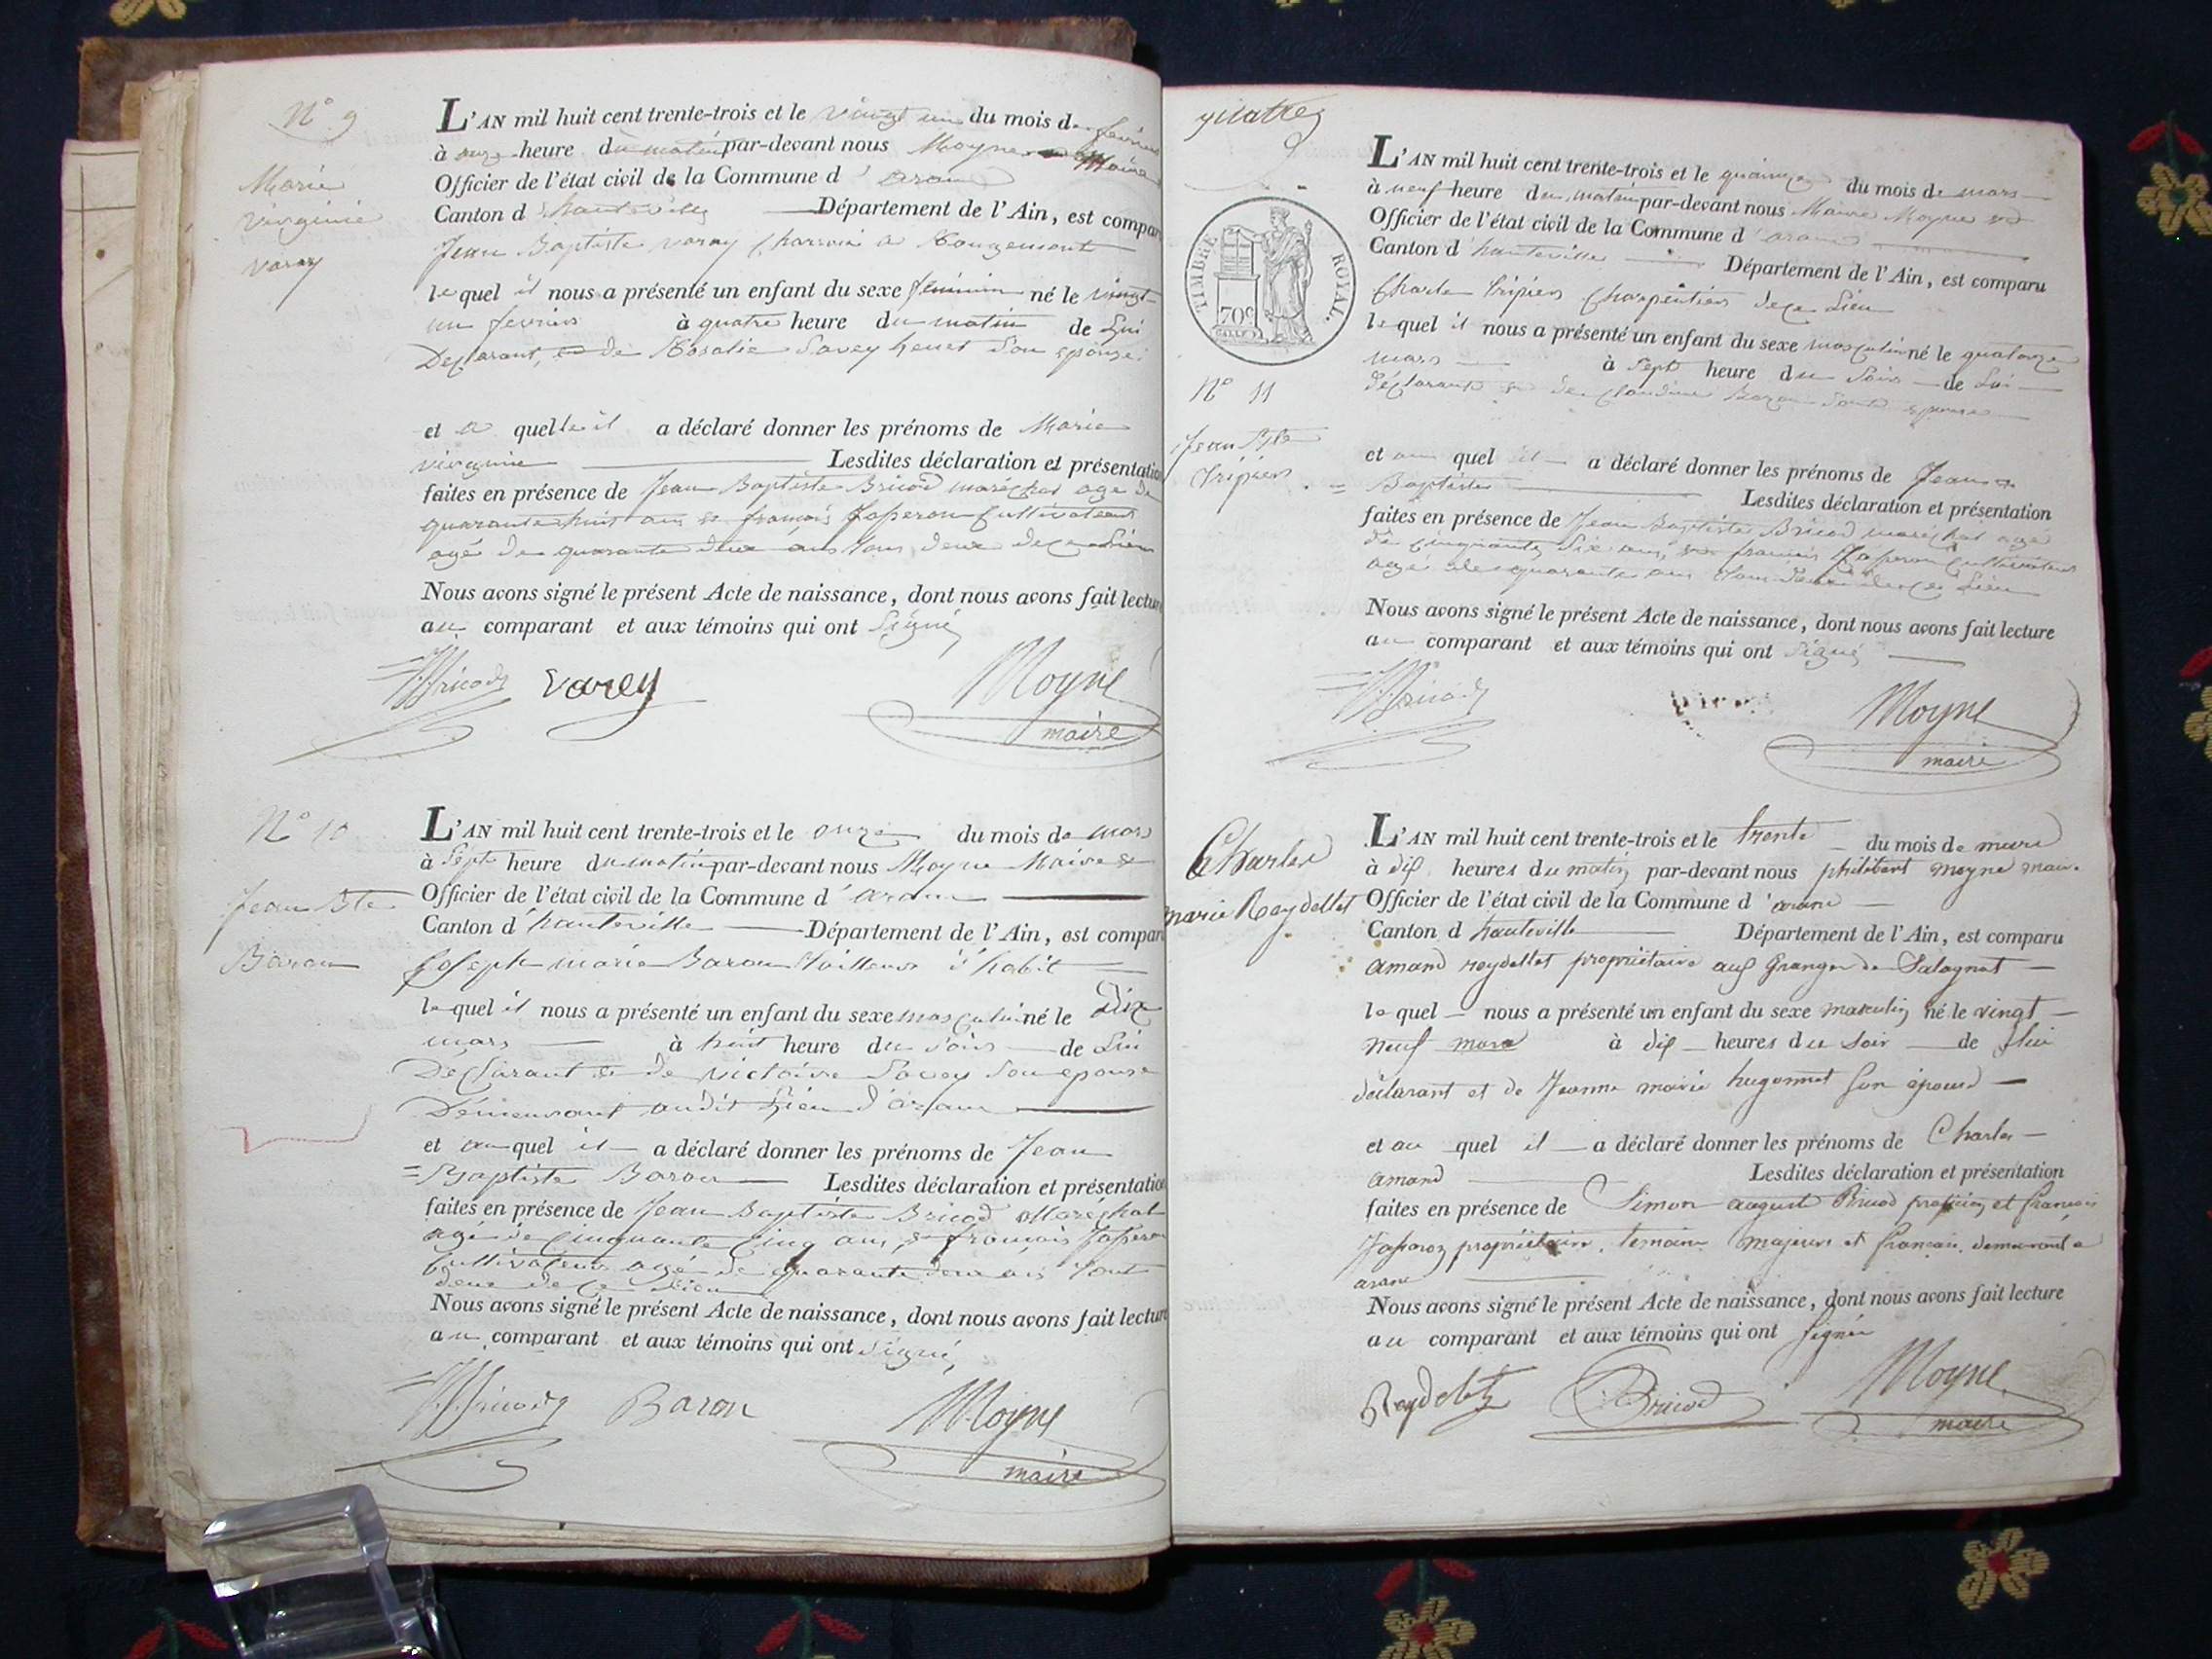 N° 9
Marie
virginie
varay
L'AN mil huit cent trente-trois et le vingt un du mois de fevrier
à onze heure du matin par-devant nous Moyne Maire
Officier de l'état civil de la Commune d' aran
Canton d hauteville Département de l'Ain, est compar
Jean Baptiste varay Charron a Rougemont
lequel il nous a présenté un enfant du sexe feminin né le vingt
un fevrier à quatre heure du matin de Lui
Declarant, et de Rosalie Savey son epouse
et a quelle il a déclaré donner les prénoms de Marie
virginie Lesdites déclaration et présentation
faites en présence de Jean Baptiste Bricod maréchal age de
quarante huit ans et françois Japeron Cultivateur
agé de quarante deux ans tous deux de ce Lieu
Nous avons signé le présent Acte de naissance, dont nous avons fait lecture
au comparant et aux témoins qui ont Signé
Bricod varey Moyne
maire
N° 10
Jean Bte
Baron
L'AN mil huit cent trente-trois et le onze du mois de mars
à Sept heure du matin par-devant nous Moyne Maire &
Officier de l'état civil de la Commune d' aran
Canton d' hauteville Département de l'Ain, est compar
Joseph marie Baron tailleur d'habit
lequel il nous a présenté un enfant du sexe masculin né le Dix
mars à huit heure du soir de Lui
Declarant & de victoire Savey son epouse
Demeurant audit Lieu d'aran
et au quel il a déclaré donner les prénoms de Jean
= Baptiste Baron Lesdites déclaration et présentation
faites en présence de Jean Baptiste Bricod Marechal
agé de Cinquante Cinq ans, & françois Japeron
Cultivateur agé de quarante deux ans tout
deux de ce Lieu
Nous avons signé le présent Acte de naissance, dont nous avons fait lecture
au comparant et aux témoins qui ont signé
Bricod Baron Moyne
maire
quatre
TIMBRE ROYAL.
70c
N° 11
Jean Bte
Tripier
L'AN mil huit cent trente-trois et le quinze du mois de mars
à neuf heure du matin par-devant nous Maire Moyne
Officier de l'état civil de la Commune d' aran
Canton d' hauteville Département de l'Ain, est comparu
Charle Tripier Charpentier de ce Lieu
lequel il nous a présenté un enfant du sexe masculin né le quatorze
mars à Sept heure du Soir de Lui
déclarant & de Claudine Baron Sont epouse
et au quel il a déclaré donner les prénoms de Jean =
= Baptiste Lesdites déclaration et présentation
faites en présence de Jean Baptiste Bricod maréchal agé
de cinquante Six ans, et françois Japeron Cultivateur
agé de quarante ans tous deux de ce Lieu
Nous avons signé le présent Acte de naissance, dont nous avons fait lecture
au comparant et aux témoins qui ont Signé
Bricod Moyne
maire
Charles
marie Reydellet
L'AN mil huit cent trente-trois et le trente du mois de mars
à dix heures du matin par-devant nous philibert moyne mair.
Officier de l'état civil de la Commune d' arane
Canton d hauteville Département de l'Ain, est comparu
amand reydellet propriétaire aux Granges de Salagnat
lequel nous a présenté un enfant du sexe masculin né le vingt
neuf mars à dix heures du Soir de Lui
déclarant et de Jeanne marie hugonnet son épouse
et au quel il a déclaré donner les prénoms de Charles
amand Lesdites déclaration et présentation
faites en présence de Simon auguste Bricod et françois
Japeron propriétaire, temoins majeurs et francais, demeurant a
arane
Nous avons signé le présent Acte de naissance, dont nous avons fait lecture
au comparant et aux témoins qui ont signés
Reydelet Bricod Moyne
maire